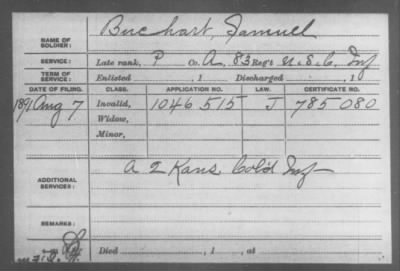 Burchart, Samuel
NAME OF SOLDIER:
SERVICE: Late rank, P Co. A, 83 Reg't U.S.C. Inf
TERM OF SERVICE: Enlisted , 1 Discharged , 1
DATE OF FILING. CLASS. APPLICATION NO. LAW. CERTIFICATE NO.
1891 Aug 7 Invalid, 1046 515 J 785 080
Widow,
Minor,
ADDITIONAL SERVICES: A 2 Kans. Col'd Inf
REMARKS:
Died , 1 , at